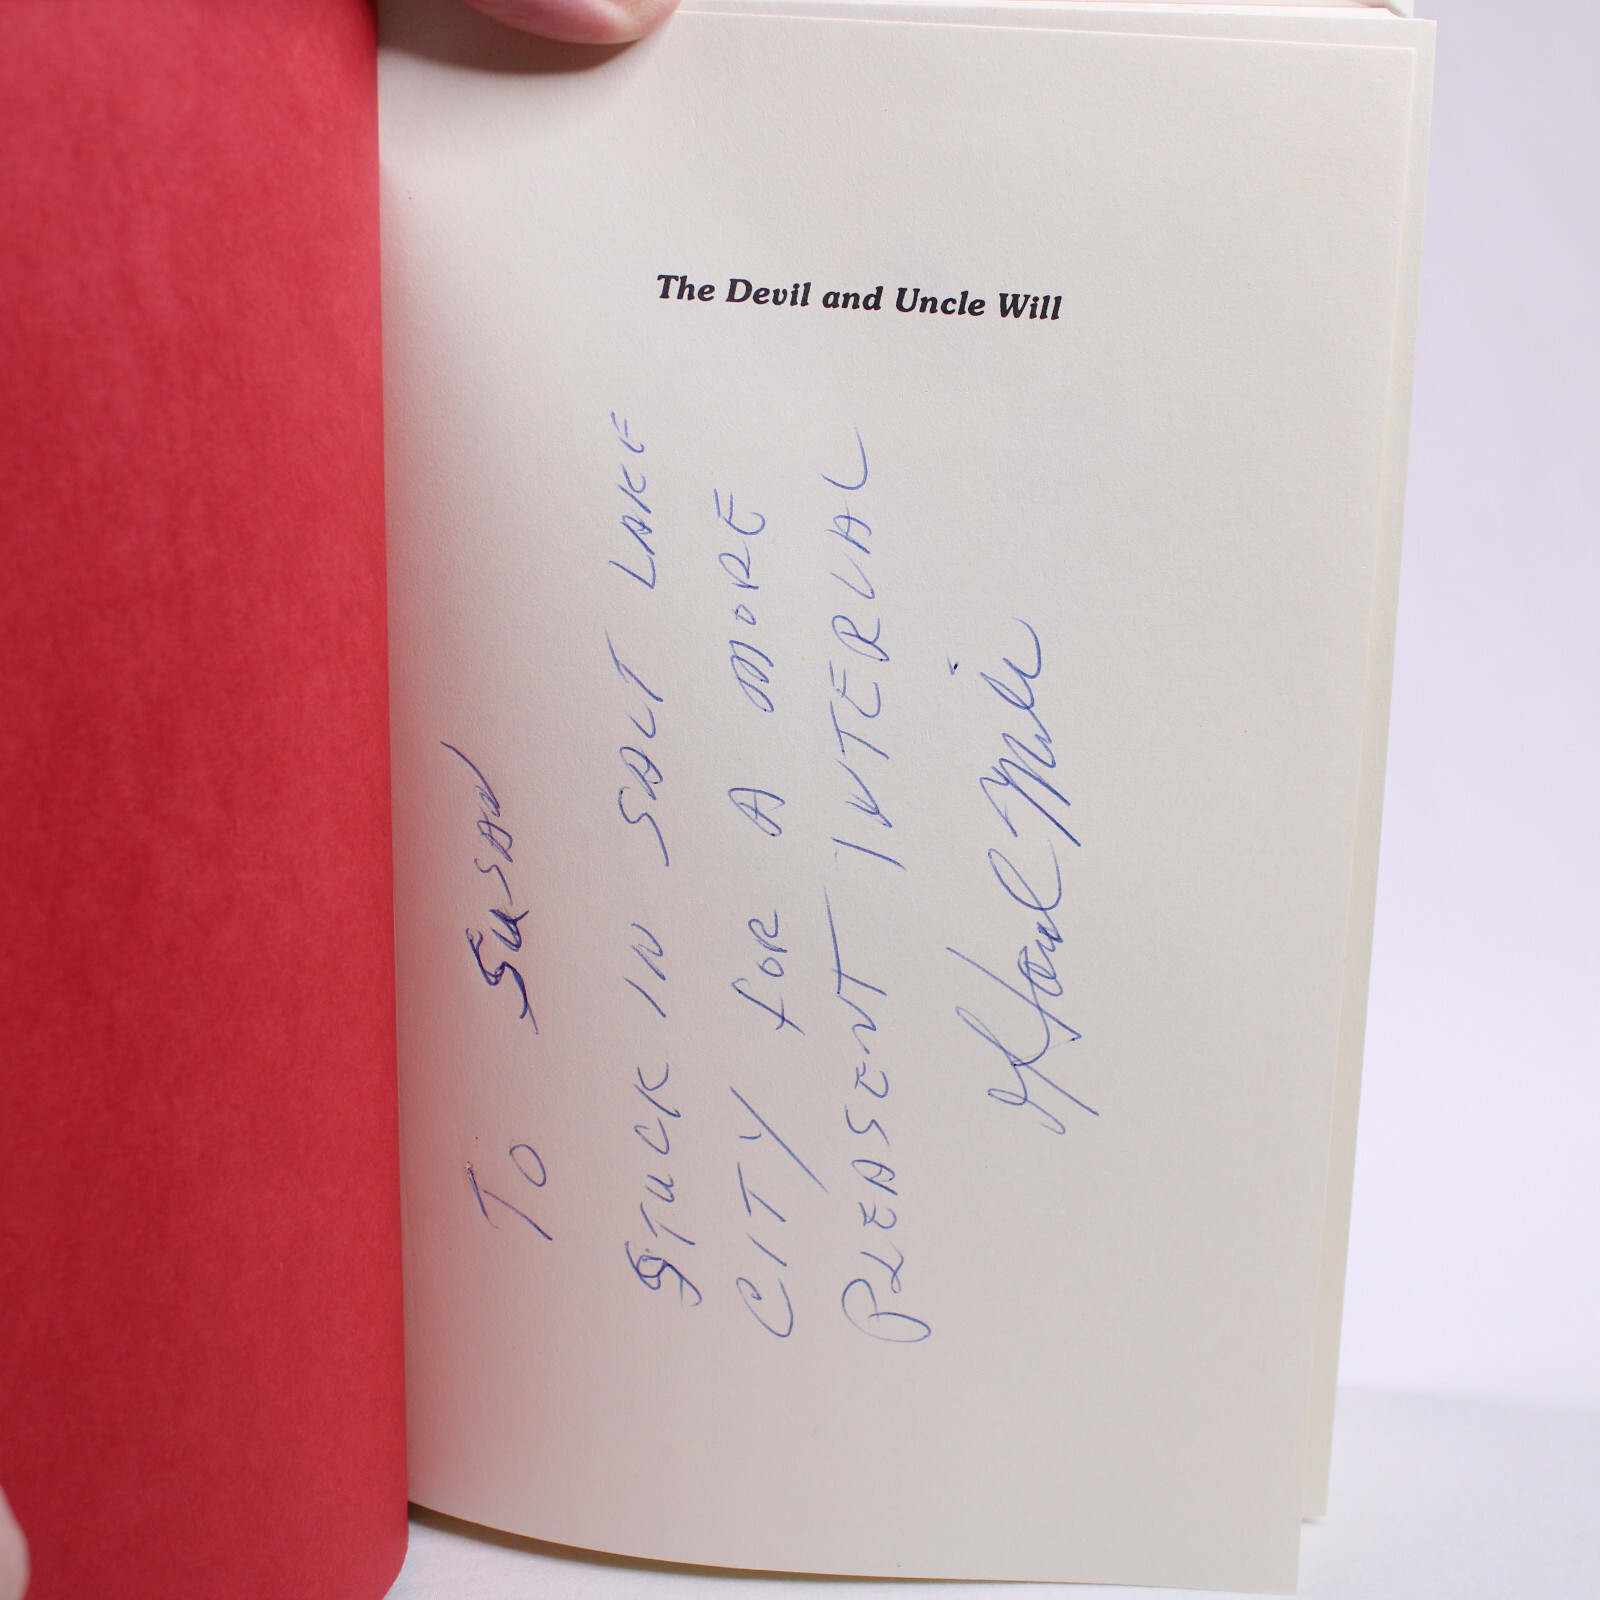 The Devil and Uncle Will
TO SUSAN
STUCK IN SALT LAKE
CITY FOR A MORE
PLEASENT INTERVAL